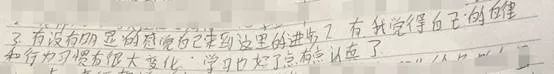 了 有没有明显的感觉自己来到这里的进步？有 我觉得自己的自律
和行为习惯有很大变化，学习也好了点有点认真了